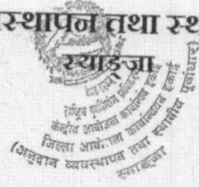 स्थापन तथा स्थ
स्याङ्जा
केन्द्रीय आयोजना कार्यान्वयन इकाई
जिल्ला आयोजना कार्यान्वयन इकाई
(अनुदान व्यवस्थापन तथा स्थानीय पूर्वाधार)
स्याङ्जा